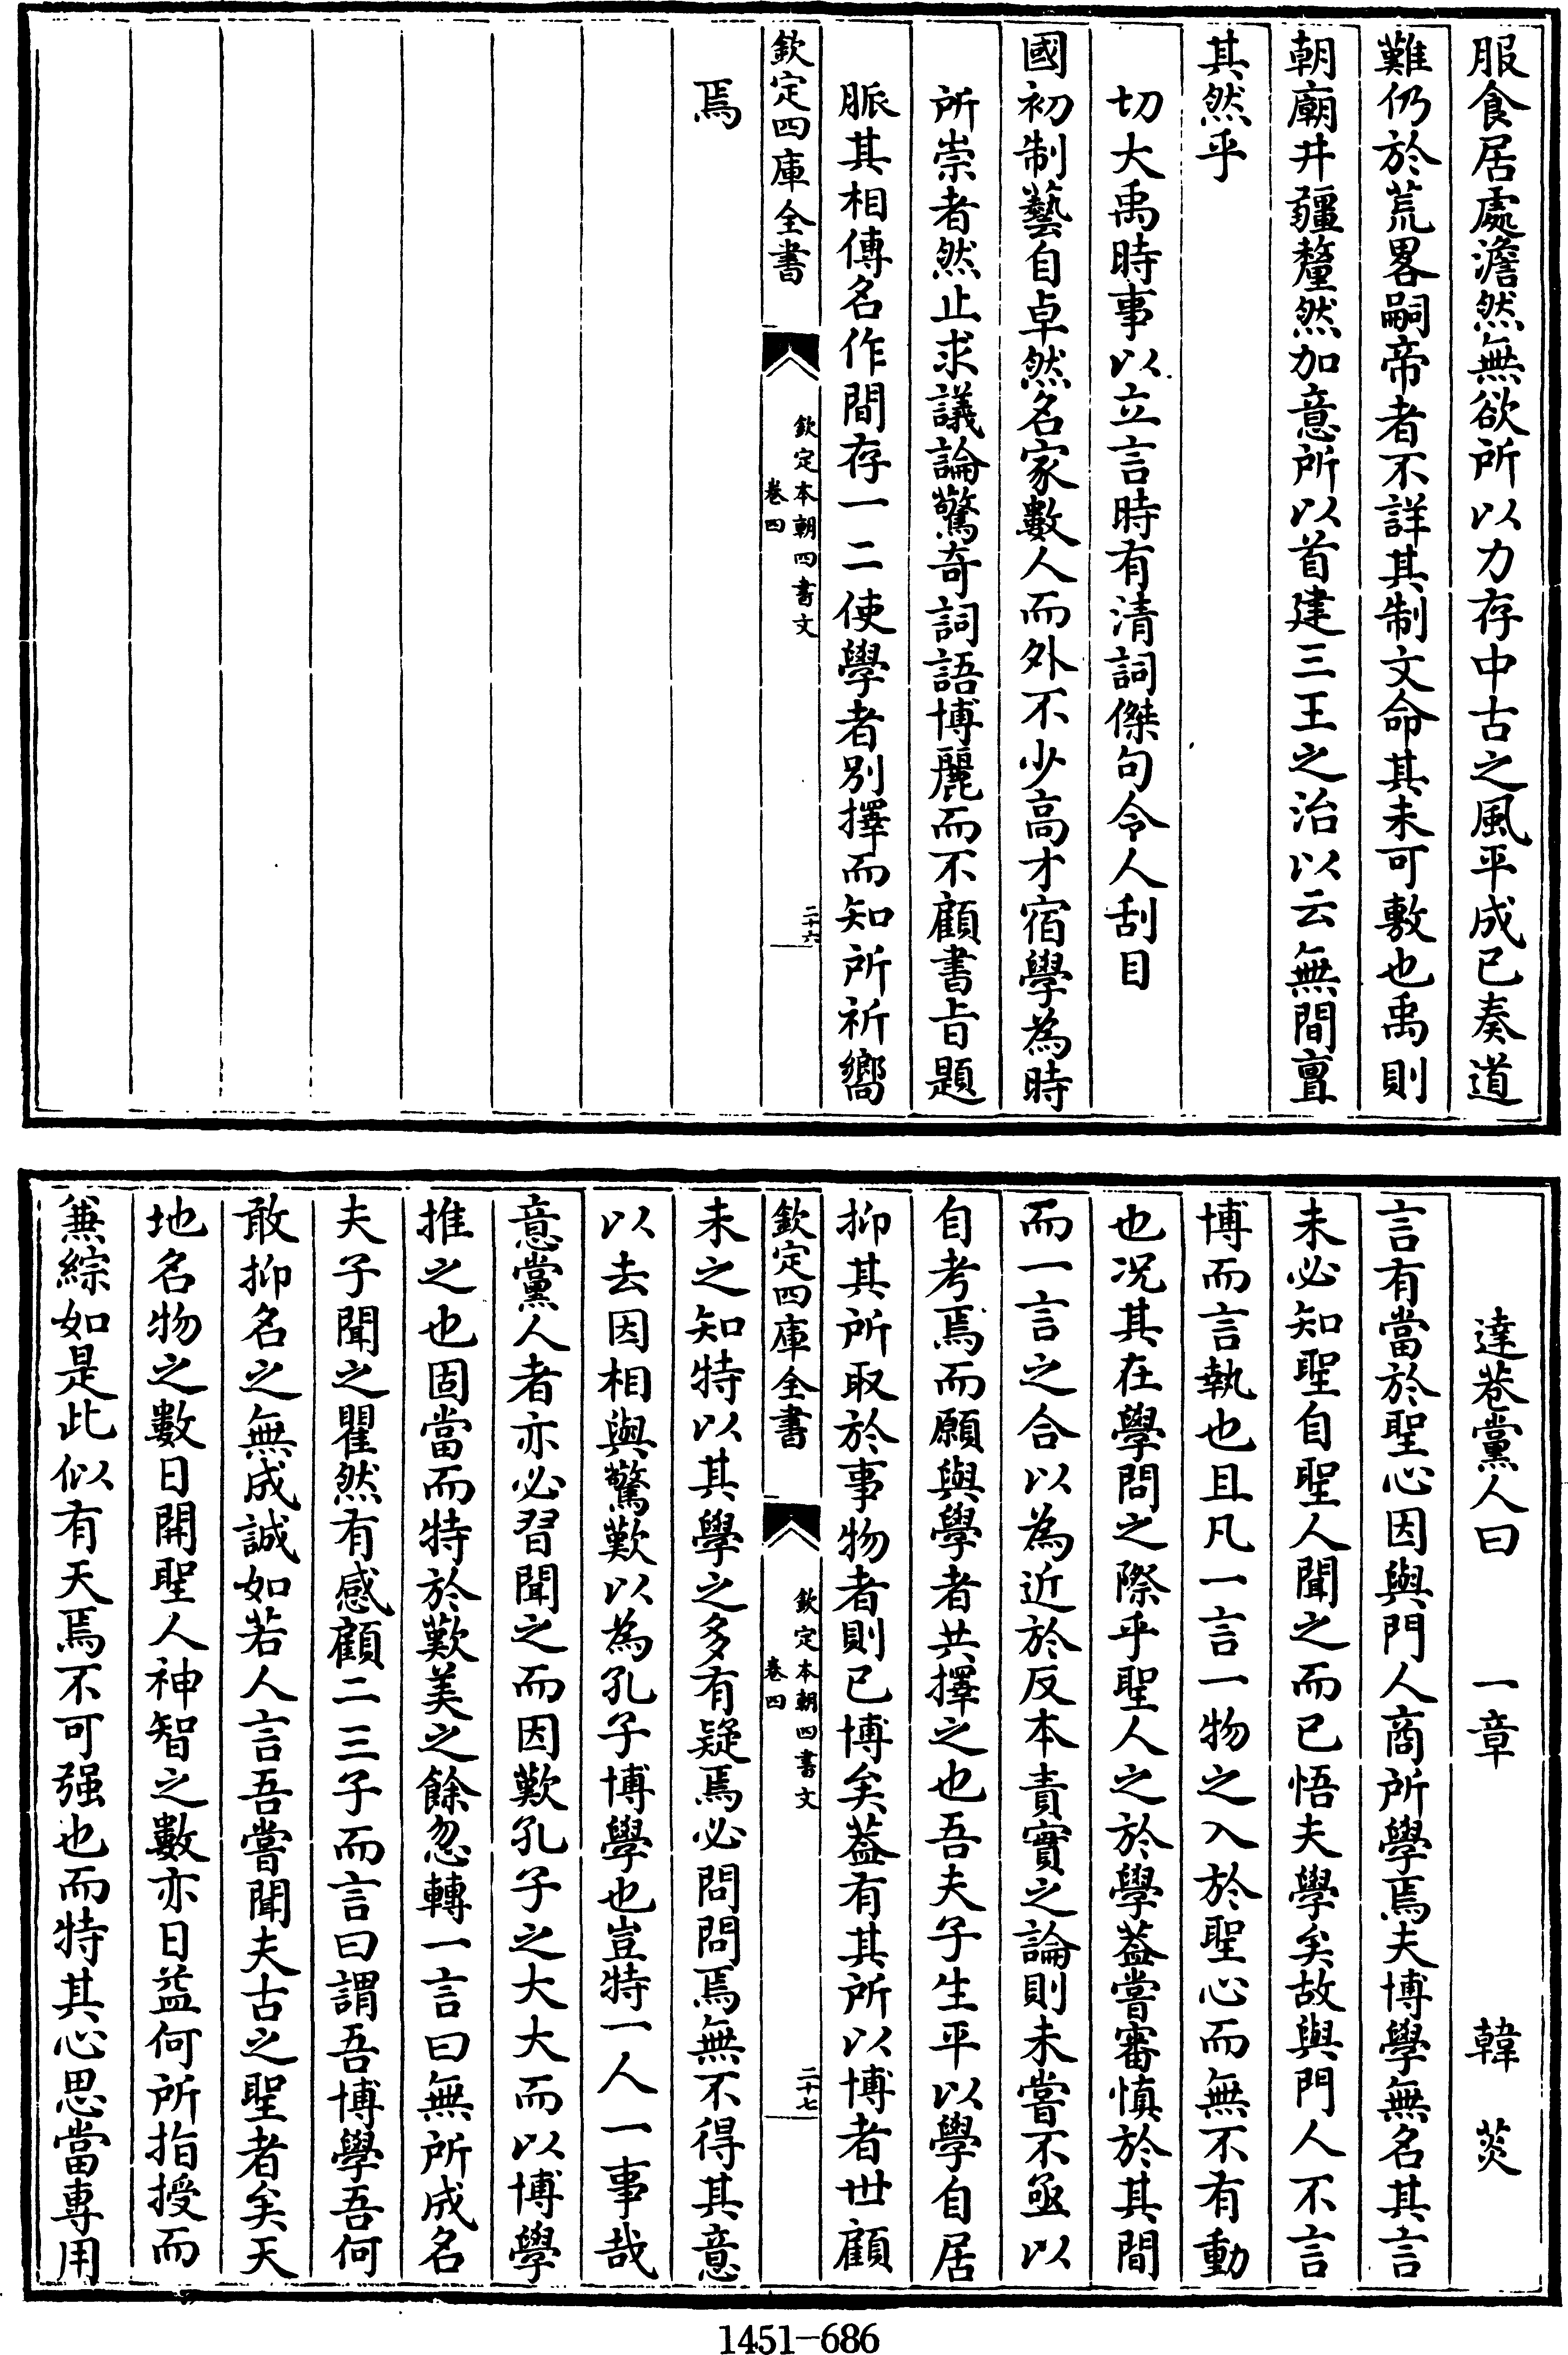 服食居處澹然無欲所以力存中古之風平成已奏道
難仍於荒畧嗣帝者不詳其制文命其未可敷也禹則
朝廟井疆釐然加意所以首建三王之治以云無間亶
其然乎
切大禹時事以立言時有清詞傑句令人刮目
國初制藝自卓然名家數人而外不少高才宿學為時
所崇者然止求議論驚奇詞語博麗而不顧書旨題
脈其相傳名作間存一二使學者別擇而知所祈嚮
欽定四庫全書
欽定本朝四書文
卷四
二十六
焉
達巷黨人曰 一章 韓菼
言有當於聖心因與門人商所學焉夫博學無名其言
未必知聖自聖人聞之而已悟夫學矣故與門人不言
博而言執也且凡一言一物之入於聖心而無不有動
也况其在學問之際乎聖人之於學葢嘗審慎於其間
而一言之合以為近於反本責實之論則未嘗不亟以
自考焉而願與學者共擇之也吾夫子生平以學自居
抑其所取於事物者則已博矣葢有其所以博者世顧
欽定四庫全書
欽定本朝四書文
卷四
二十七
未之知特以其學之多有疑焉必問問焉無不得其意
以去因相與驚歎以為孔子博學也豈特一人一事哉
意黨人者亦必習聞之而因歎孔子之大大而以博學
推之也固當而特於歎美之餘忽轉一言曰無所成名
夫子聞之瞿然有感顧二三子而言曰謂吾博學吾何
敢抑名之無成誠如若人言吾嘗聞夫古之聖者矣天
地名物之數日開聖人神智之數亦日益何所指授而
兼綜如是此似有天焉不可强也而特其心思當專用
1451-686